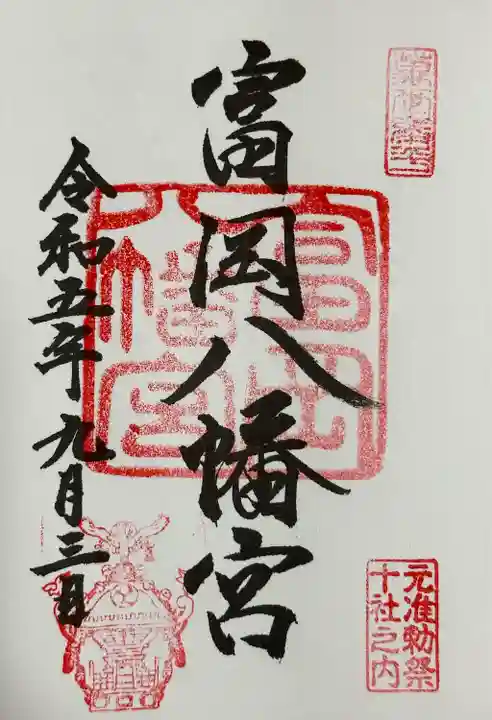 富岡八幡宮
令和五年九月三日
富岡
八幡宮
元准勅祭
十社之内